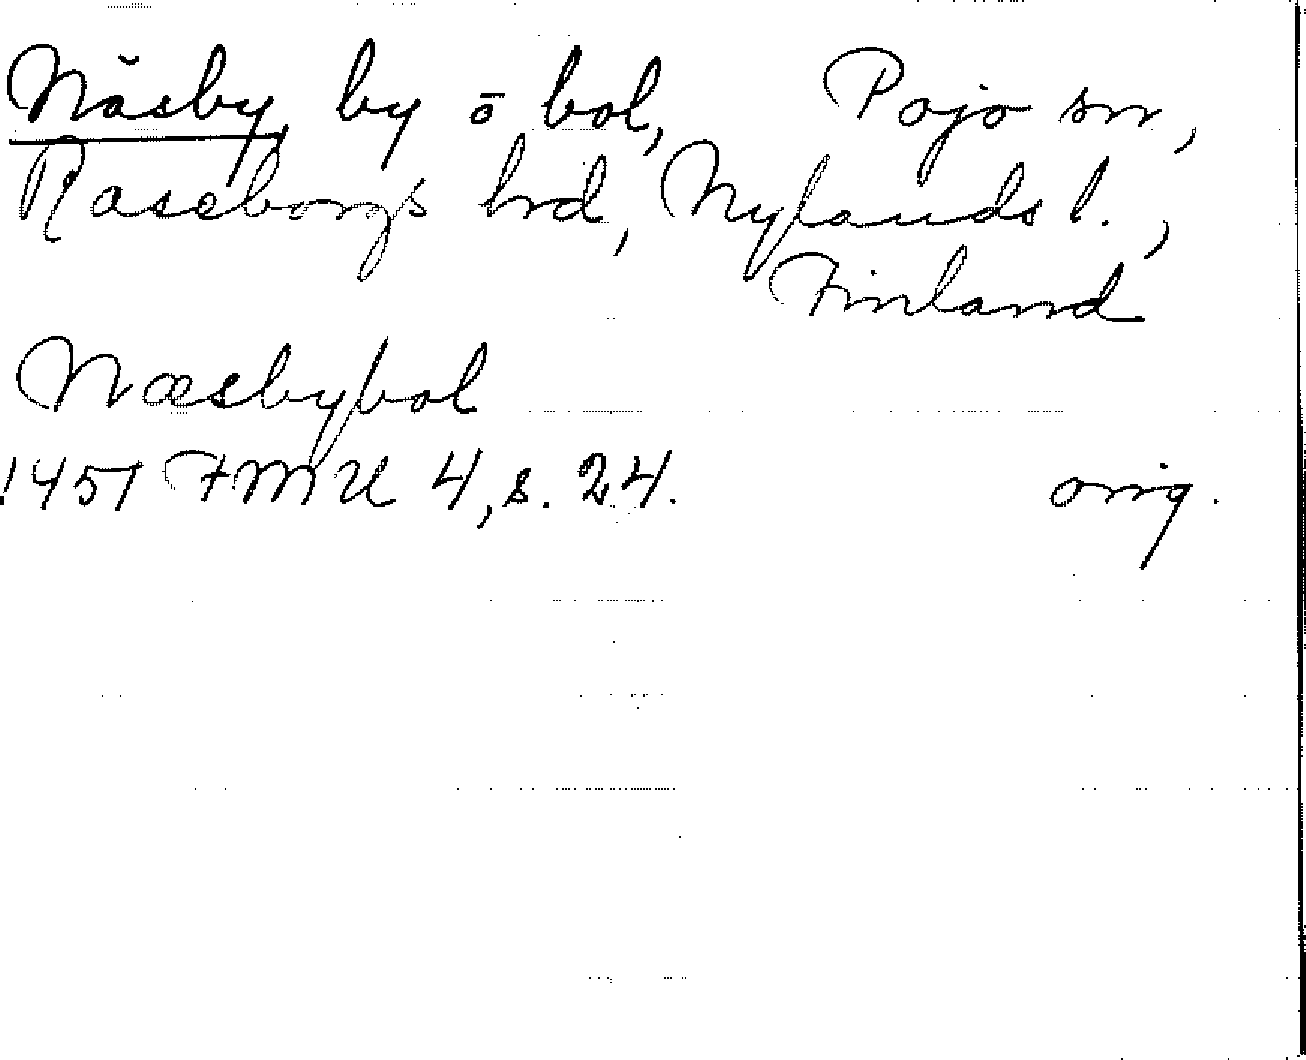 Näsby, by ō bol, Pojo sn,
Raseborgs hrd, Nylands l.,
Finland
Næsbybol
1451 FMU 4, s. 24. orig.